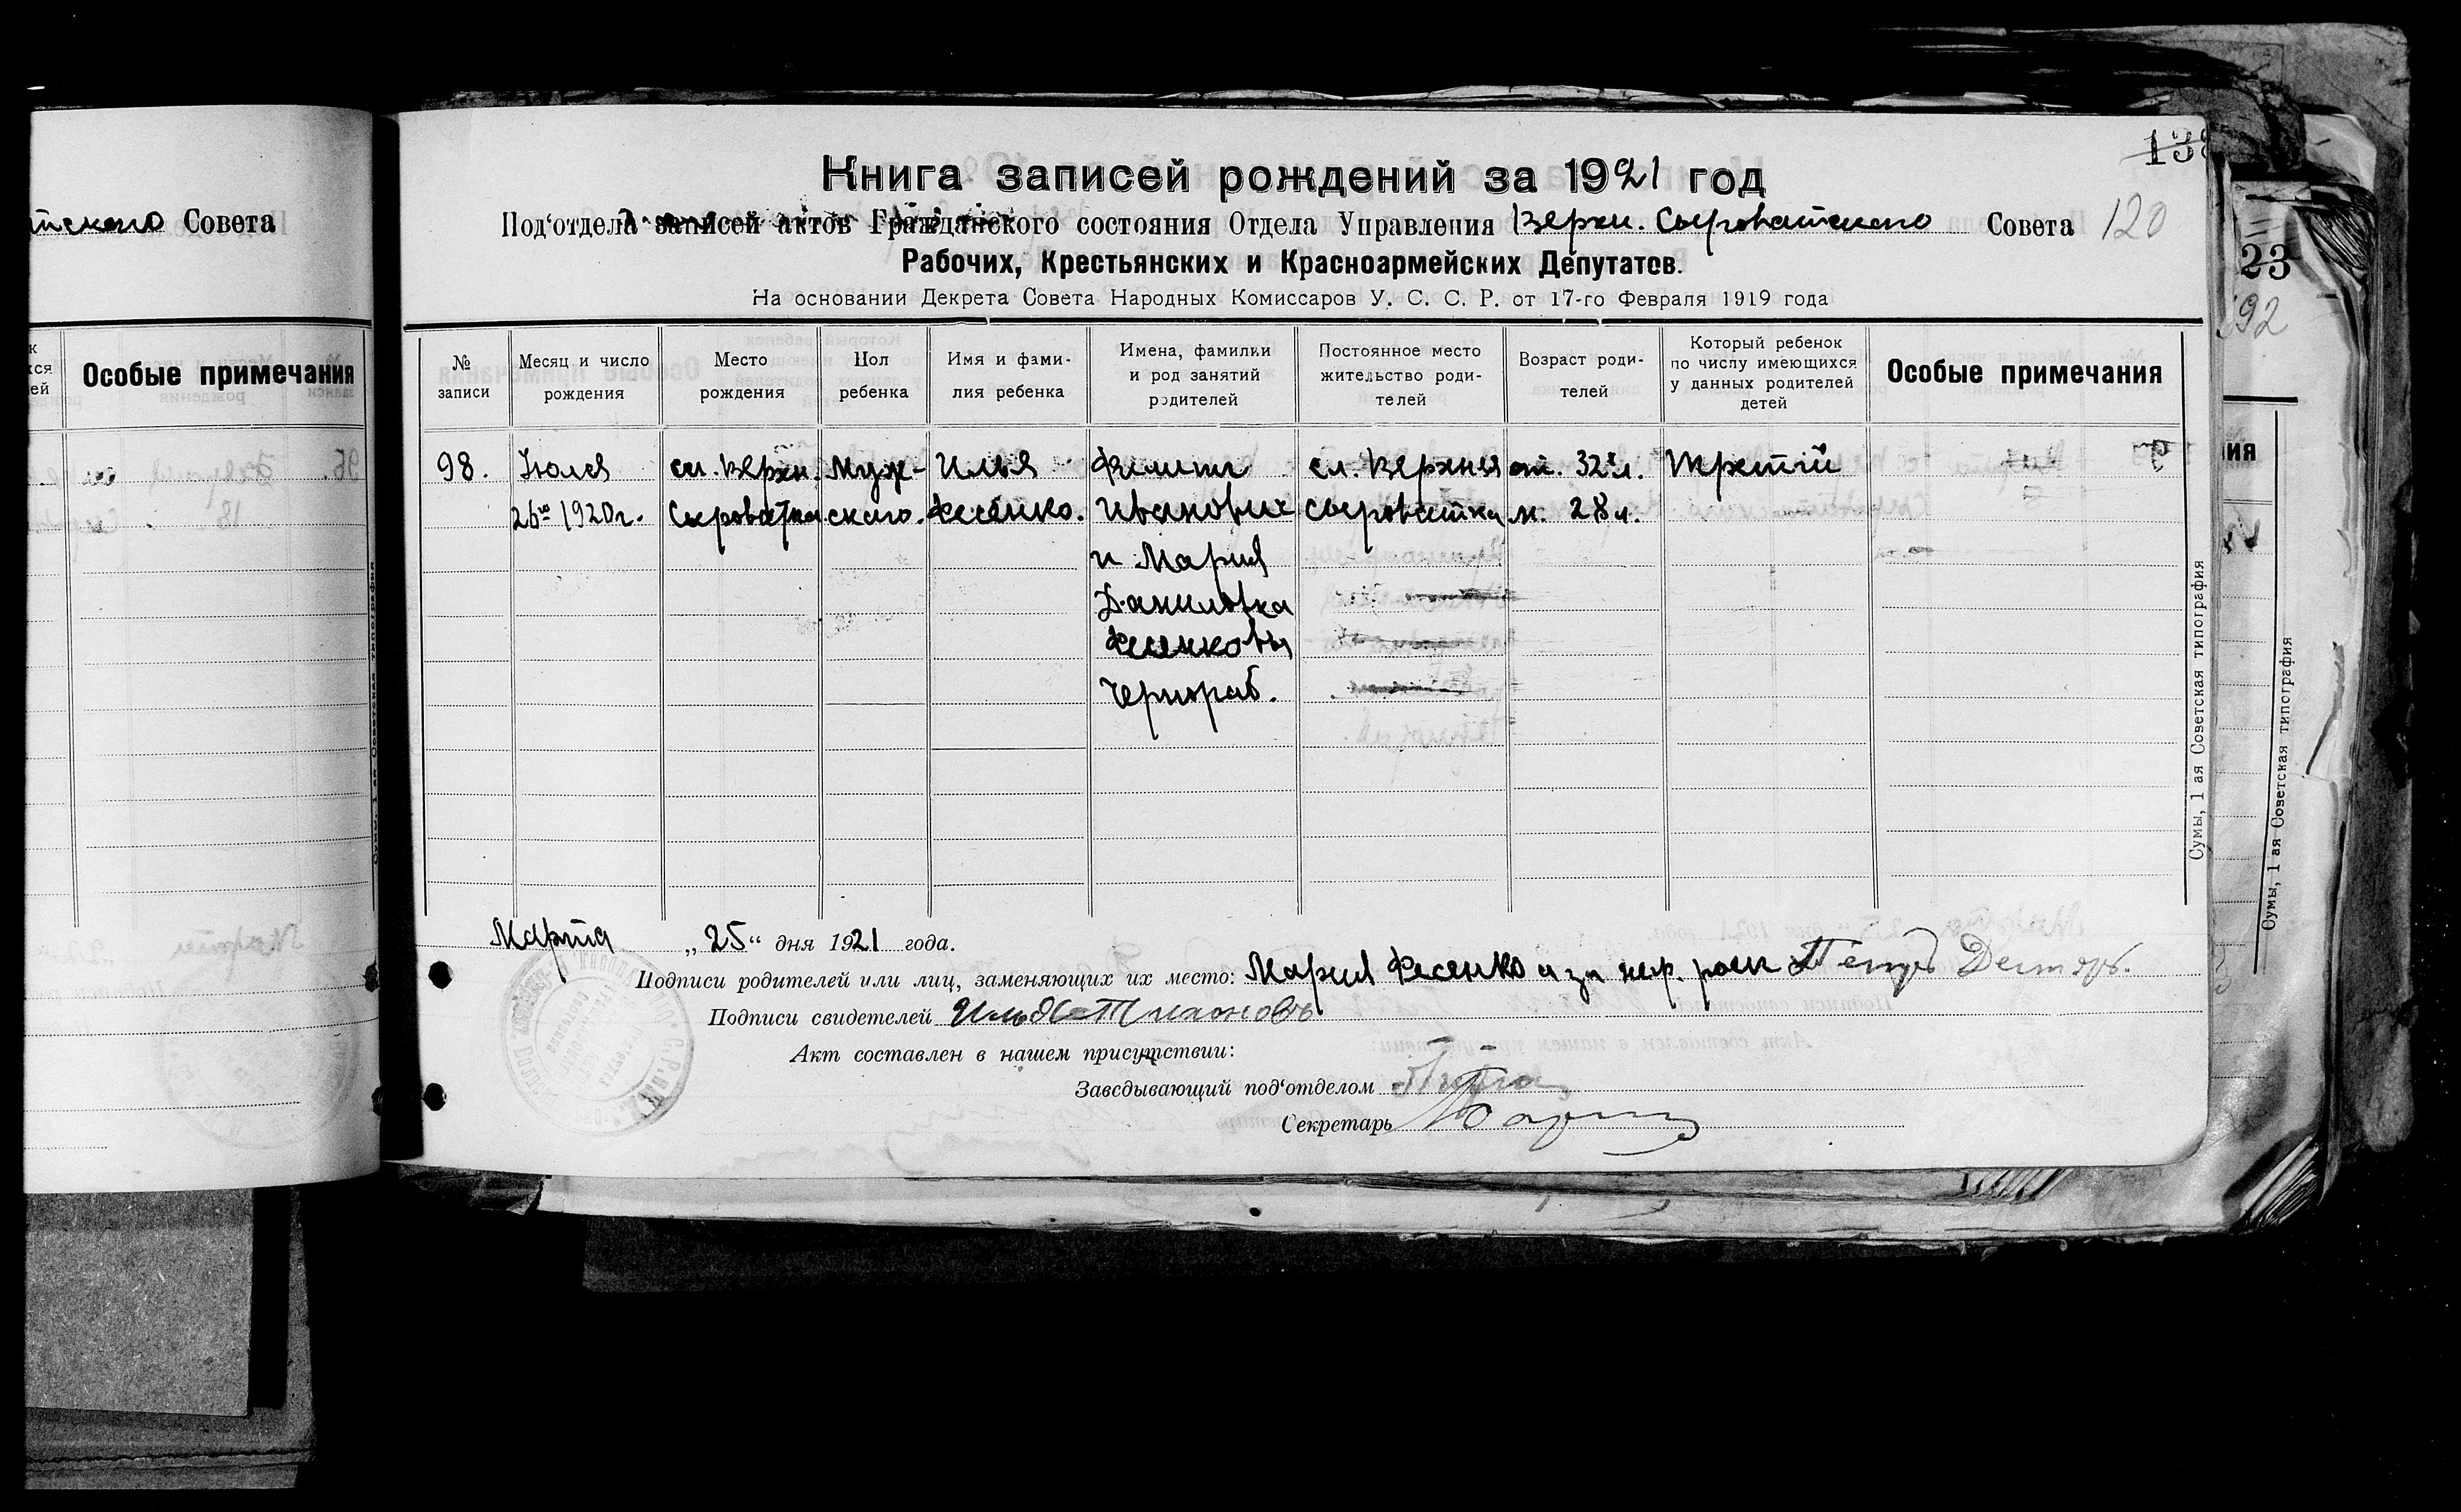 Совета
Особые примечания
138
Книга записей рождений за 1921 год
Под'отдела записей актов Гражданского состояния Отдела Управления Верхн. Сыроватского Совета 120
Рабочих, Крестьянских и Красноармейских Депутатов.
На основании Декрета Совета Народных Комиссаров У. С. С. Р. от 17-го Февраля 1919 года
№ записи
Месяц и число рождения
Место рождения
Пол ребенка
Имя и фамилия ребенка
Имена, фамилии и род занятий родителей
Постоянное место жительство родителей
Возраст родителей
Который ребенок по числу имеющихся у данных родителей детей
Особые примечания
98.
Июля
26го 1920 г.
сл. Верхн.
Сыроватка
Муж-
ского.
Илья
Фесенко.
Филипп
Иванович
и Мария
Даниловна
Фесенковы
Чернораб.
сл. Верхняя
Сыроватка
от. 32х л.
м. 28 л.
Третий
Марта „25“ дня 1921 года.
Подписи родителей или лиц, заменяющих их место: Мария Фесенко а за негр. росп
Подписи свидетелей Илья Тихоновъ
Акт составлен в нашем присутствии:
Заведывающий под'отделом
Секретарь
Сумы, 1 ая Советская типография
23
92
Сумы, 1 ая Советская типография